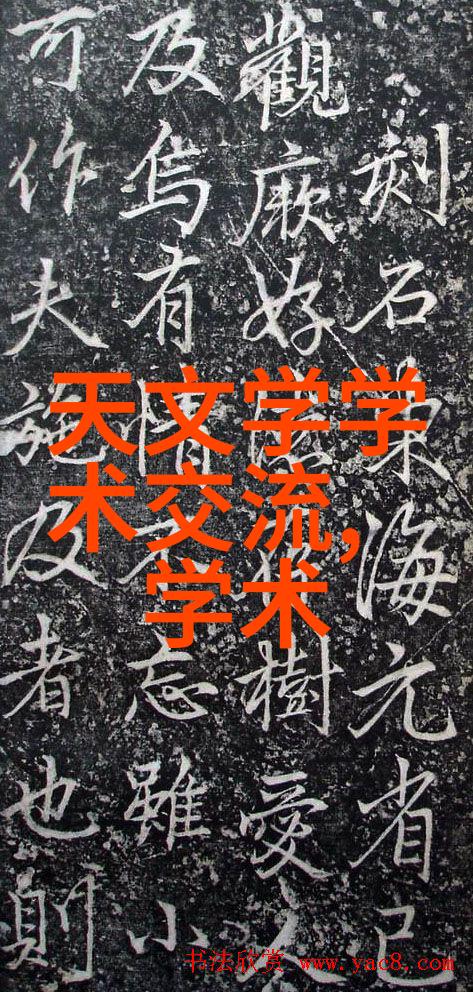 刻石東海元省已
觀厥好樹愛
及烏有情不忘雖小
可作夫施及者也則
天文学学
术交流,
学术
书法欣赏 www.yac8.com